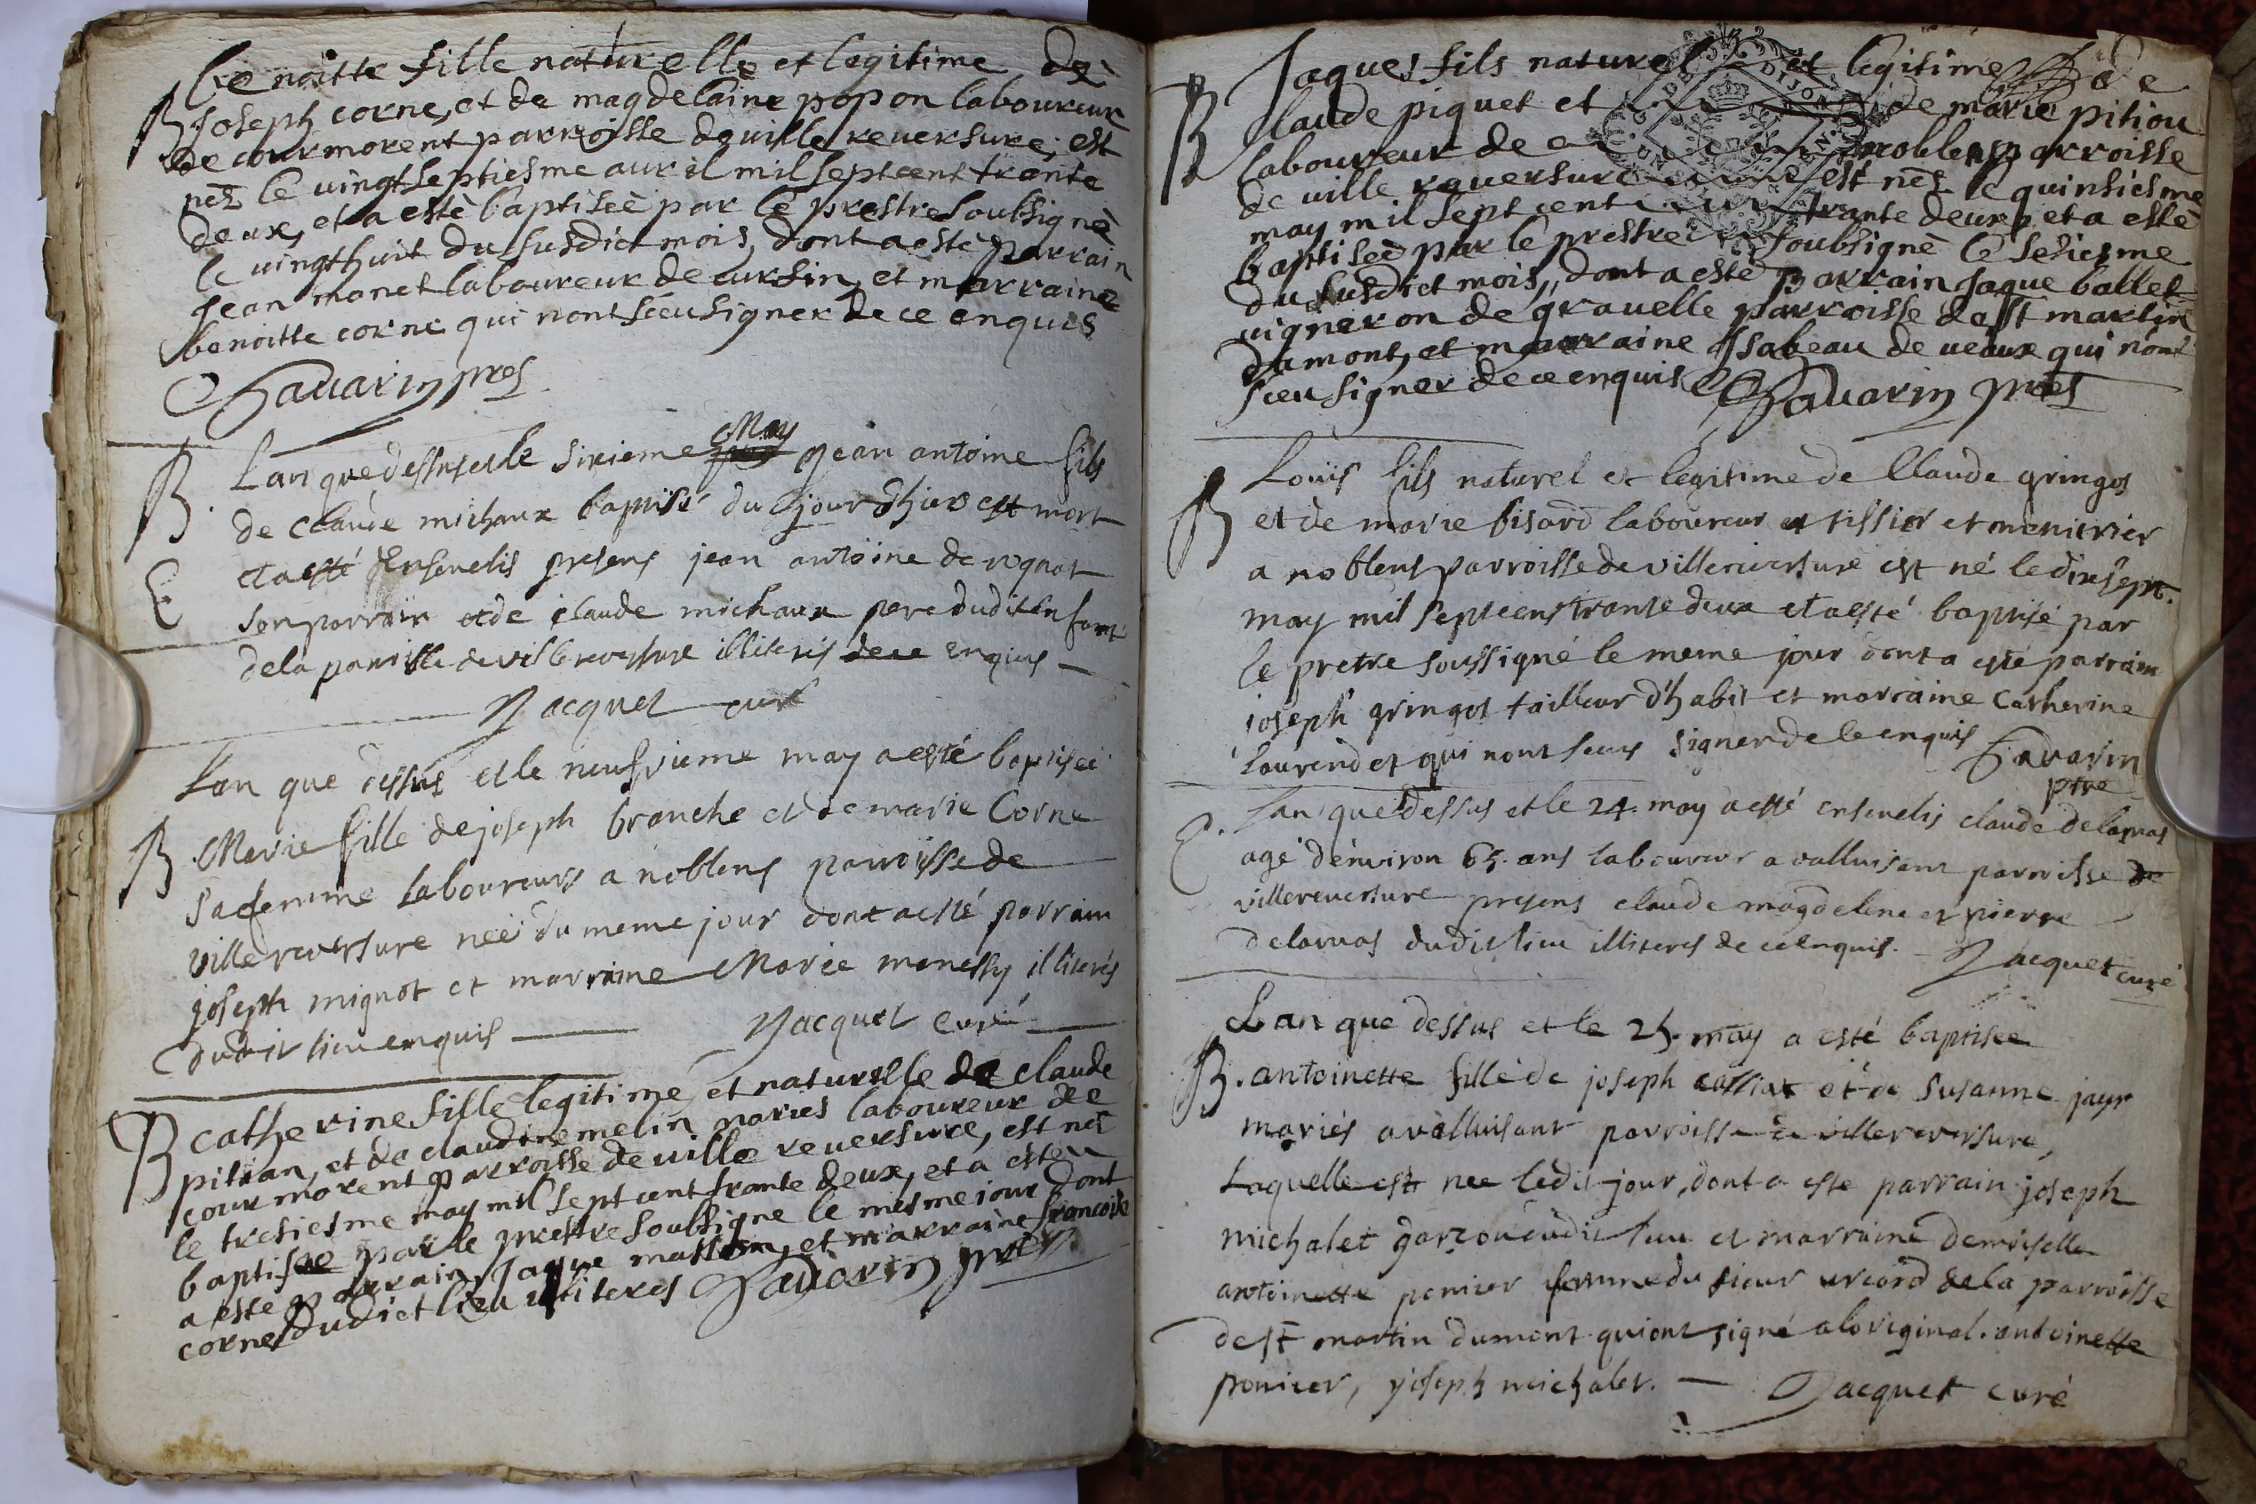 Benoitte fille naturelle et legitime de
B Joseph corne, et de magdelaine popon laboureur
de courmorent parroisse de ville reuersure, est
néz le uingtseptiesme auril mil sept cent trante
deux, et a esté baptiseè par le prestre soubsigné
le uingthuit du susdict mois, dont a esté parrain
jean monet laboureur de cursin, et marraine
benoitte corne qui nont sceu signer de ce enquis
Sauarin pres
B. Lan que dessus et le sixieme May jean antoine fils
de Claude michaux baptisé du jour dhier est mort
E et a esté Ensevelis presens jean antoine derognat
son parrain et de claude michaux pere dudit enfant
de la parroisse de villereversure illiterés de ce enquis
Jacquet curé
Lan que dessus et le neufvieme may a esté baptisée
B. Marie fille de joseph branche et de marie Corne
sa femme laboureurs a noblens parroisse de
villereversure née du meme jour dont a esté parrain
joseph mignot et marraine Marie monessy illiterés
dudit lieu enquis Jacquet Curé
B catherine fille legitime, et naturelle de claude
pitian, et de claudine melin mariés laboureur de
courmorent parroisse de ville reuersure, est néé
le tresiesme may mil sept cent trante deux, et a esteu
baptisée par le prestre soubsigne le mesme iour dont
a este parrain Jaque masson, et marraine francoise
corne dudict lieu illiteres Sauarin pres
Jaques fils naturel et legitime de
B Claude piquet et de marie pitiou
laboureur de noblens parroisse
de ville reuersure est néz le quinsiesme
may mil sept cent trante deux, et a esté
baptiseé par le prestre soubsigné le sesiesme
du susdict mois, dont a esté parrain jaque ballet
uigneron de grauelle parroisse de st martin
du mont, et marraine Isabeau de ueaux qui nont
sceu signer de ce enquis Sauarin pres
Louis fils naturel et legitime de Claude gringos
B et de marie bisard laboureur et tissier et menetrier
a noblens parroisse de villereversure est né le dixsept.
may mil sept cens trante deux et a esté baptisé par
le pretre soussigné le meme jour dont a esté parrain
joseph gringos tailleur d'habit et marraine Catherine
Lourendet qui nont sceus signer de ce enquis Savarin
ptre
E. Lan que dessus et le 24. may a esté ensevelis claude delornas
agé d'environ 65. ans laboureur a valluisant parroisse de
villereuersure presens claude magdeleine et pierre
delornas dudit lieu illiteres de ce enquis. Jacquet curé
Lan que dessus et le 25. may a esté baptisée
B. antoinette fille de joseph cassiat et de Susanne jayr
mariés a valluisant parroisse de villereversure,
Laquelle est née ledit jour, dont a este parrain joseph
michalet garçon dudit lieu et marraine demoiselle
antoinette ponicer femme du sieur urcord de la parroisse
de st martin dumont qui ont signé a loriginal. antoinette
ponicer, joseph michalet. Jacquet curé